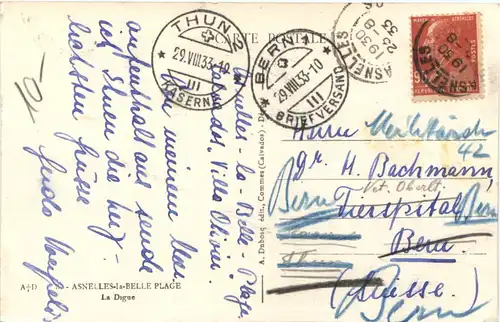 CARTE POSTALE
THUN 2
29.VIII.33-10
III
KASERNE
BERN 1
29.VIII.33-10
III
BRIEFVERSAND
ASNELLES
1930
25-8
33
ASNELLES
1930
Asnelles-la-Belle-Plage
Calvados. Villa Olivier.
Von meinem
aufenthalt aus sende
ich Ihnen die herz-
lichsten Grüsse
Guido
A. Dubosq édit., Commes (Calvados)
Herrn
42
Dr. H. Bachmann,
Vet. Oberlt.
Bern
Tierspital
Bern
Bern
(Suisse)
Bern
A+D
ASNELLES-la-BELLE PLAGE
La Digue